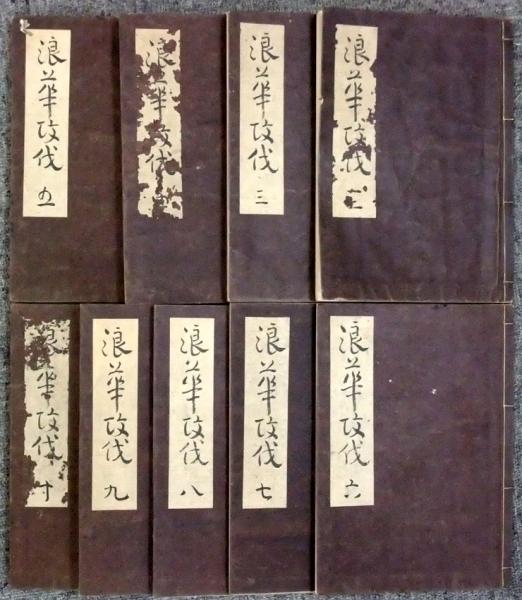 浪華攻伐
浪華攻伐 三
浪華攻伐
浪華攻伐 五
浪華攻伐 六
浪華攻伐 七
浪華攻伐 八
浪華攻伐 九
浪華攻伐 十